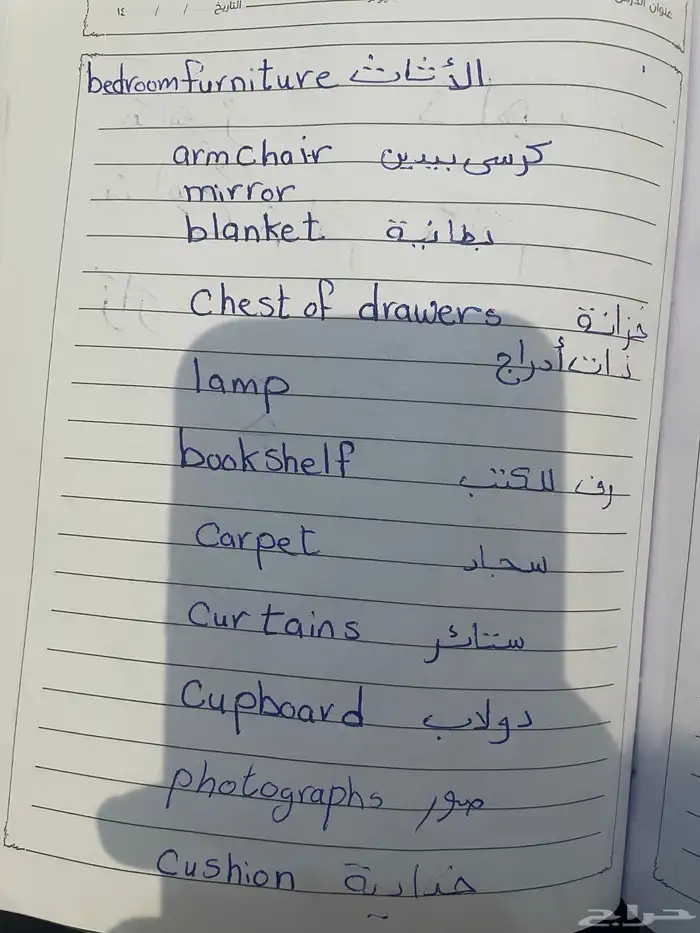 عنوان الدرس التاريخ / / ١٤
bedroom furniture الأثاث
armchair كرسى بيدين
mirror
blanket بطانية
Chest of drawers خزانة
ذات أدراج
lamp
bookshelf رف للكتب
Carpet سجاد
Curtains ستائر
Cupboard دولاب
photographs صور
Cushion خدادية
حراج